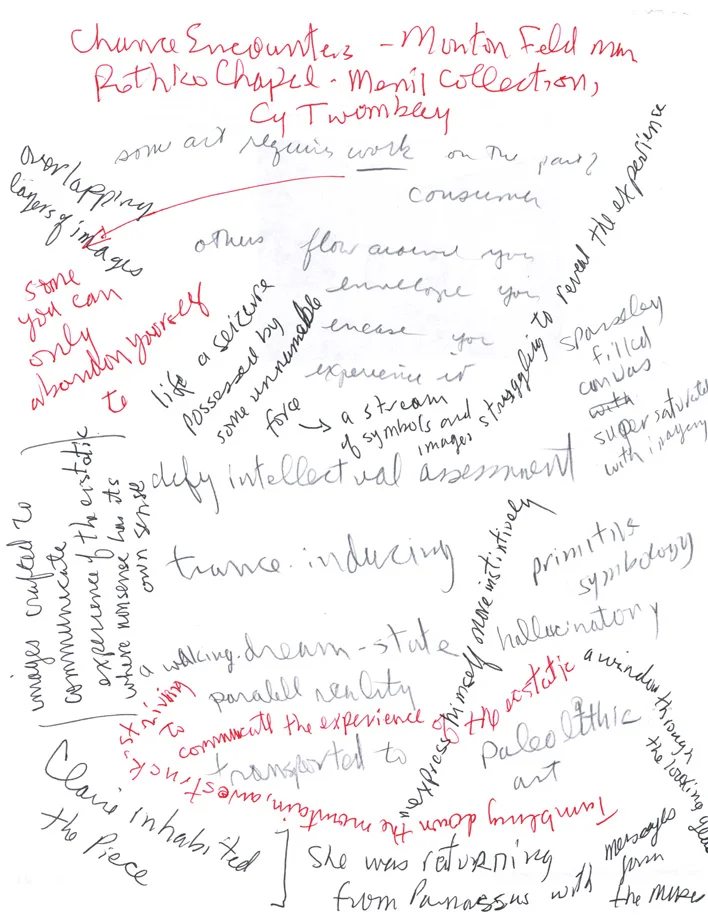 Chance Encounters - Monton Feldman
Rothko Chapel - Menil Collection,
Cy Twombley
some art requires work on the part?
consumer
overlapping
layers of images
others flow around you
envelope you
encase you
experience it
some
you can
only
abandon yourself
to
like a seizure
possessed by
some unnameable
force → a stream
of symbols and
images struggling to reveal the experience
sparsley
filled
canvas
with
supersaturated
with imagery
defy intellectual assessment
images crafted to
communicate
experience of the ecstatic
where nonsense has its
own sense
trance-inducing
primitive
symbology
hallucinatory
a walking-dream-state
paralell reality
express himself more instintively
striving
to
communicate the experience of the ecstatic
transported to
paleolithic
art
a window through
the looking glass
Tumbling down the mountain, awestruck
Claire inhabited
the piece
She was returning
from Parnassus with messages
from
the muses